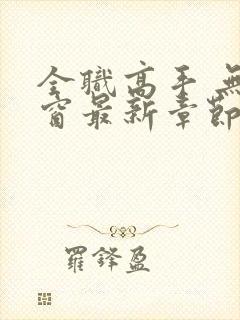 全職高手 無
窗最新章節
羅鋒盈